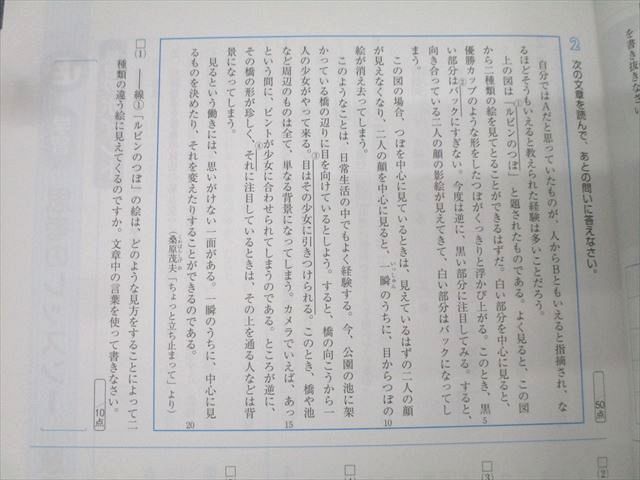 を書き抜
2 次の文章を読んで、あとの問いに答えなさい。
50点
自分ではAだと思っていたものが、人からBともいえると指摘され、な
るほどそうもいえると教えられた経験は多いことだろう。
上の図は「ルビンのつぼ」と題されたものである。よく見ると、この図
から二種類の絵を見てとることができるはずだ。白い部分を中心に見ると、
優勝カップのような形をしたつぼがくっきりと浮かび上がる。このとき、黒
い部分はバックにすぎない。今度は逆に、黒い部分に注目してみる。すると、
向き合っている二人の顔の影絵が見えてきて、白い部分はバックになってし
まう。
この図の場合、つぼを中心に見ているときは、見えているはずの二人の顔
が見えなくなり、二人の顔を中心に見ると、一瞬のうちに、目からつぼの
絵が消え去ってしまう。
このようなことは、日常生活の中でもよく経験する。今、公園の池に架
かっている橋の辺りに目を向けているとしよう。すると、橋の向こうから一
人の少女がやって来る。目はその少女に引きつけられる。このとき、橋や池
など周辺のものは全て、単なる背景になってしまう。カメラでいえば、あっ
という間に、ピントが少女に合わせられてしまうのである。ところが逆に、
その橋の形が珍しく、それに注目しているときは、その上を通る人などは背
景になってしまう。
見るという働きには、思いがけない一面がある。一瞬のうちに、中心に見
るものを決めたり、それを変えたりすることができるのである。
(桑原茂夫「ちょっと立ち止まって」より)
5
10
15
20
①
②
③
④
いっしゅん
くわばらしげお
□(1) ——線①「ルビンのつぼ」の絵は、どのような見方をすることによって二
種類の違う絵に見えてくるのですか。文章中の言葉を使って書きなさい。
10点
□(2)
□(3)